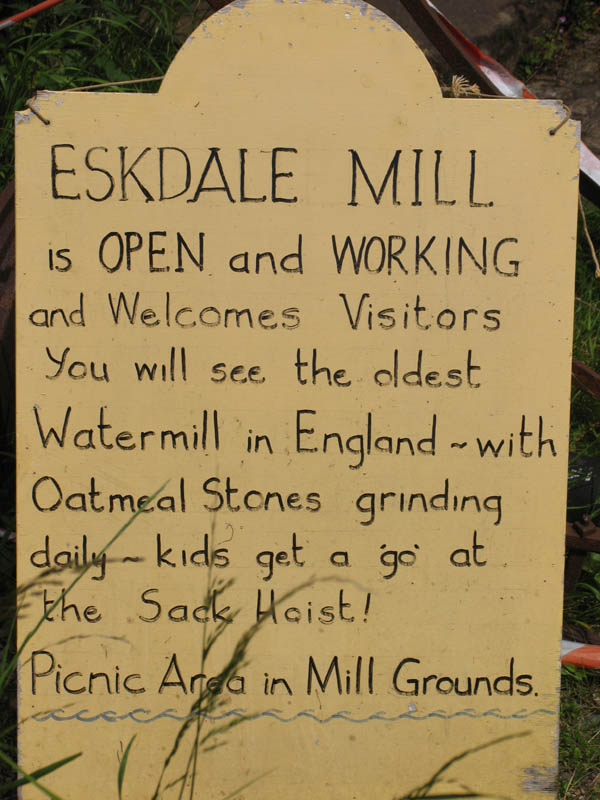 ESKDALE MILL
is OPEN and WORKING
and Welcomes Visitors
You will see the oldest
Watermill in England ~ with
Oatmeal Stones grinding
daily ~ kids get a 'go' at
the Sack Hoist!
Picnic Area in Mill Grounds.